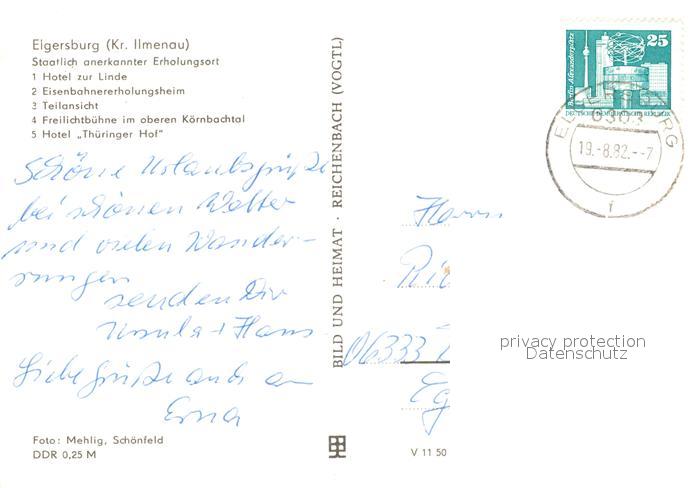 Elgersburg (Kr. Ilmenau)
Staatlich anerkannter Erholungsort
1 Hotel zur Linde
2 Eisenbahnererholungsheim
3 Teilansicht
4 Freilichtbühne im oberen Körnbachtal
5 Hotel „Thüringer Hof"
Schöne Urlaubsgrüße
bei schönen Wetter
und vielen Wander-
rungen
senden Dir
Ursula + Hans
Liebe Grüße auch an
Erna
Foto: Mehlig, Schönfeld
DDR 0,25 M
BILD UND HEIMAT · REICHENBACH (VOGTL)
V 11 50
Berlin, Alexanderplatz
25
DEUTSCHE DEMOKRATISCHE REPUBLIK
ELGERSBURG
6303
19.-8.82.--7
f
Herrn
Ric
06333
Eg
privacy protection
Datenschutz